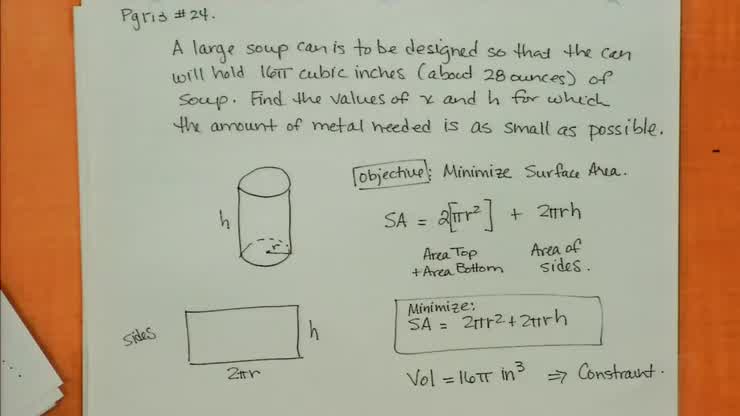 Pg 213 #24.
A large soup can is to be designed so that the can
will hold 16π cubic inches (about 28 ounces) of
soup. Find the values of x and h for which
the amount of metal needed is as small as possible.
Objective: Minimize Surface Area.
h
r
SA = 2[πr²] + 2πrh
Area Top
+ Area Bottom
Area of
sides.
sides
h
2πr
Minimize:
SA = 2πr² + 2πrh
Vol = 16π in³ ⇒ Constraint.